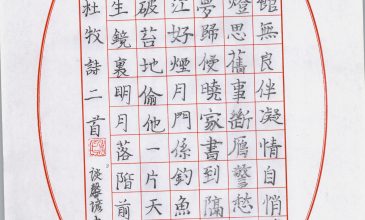 館無良伴凝情自悄
燈思舊事斷鴈警愁
夢歸侵曉家書到隔
江好煙月門係釣魚
破苔地偷他一片天
生鏡裏明月落階前
杜牧詩二首